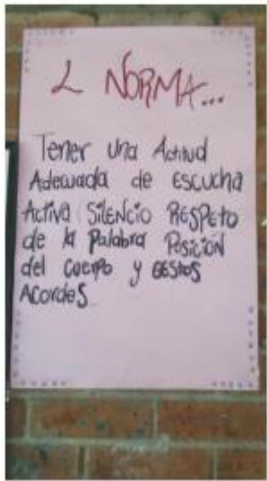 2 NORMA...
Tener una Actitud
Adecuada de Escucha
Activa (SilENCIO RESPETO
de la Palabra Posición
del Cuerpo y GEStos
Acordes